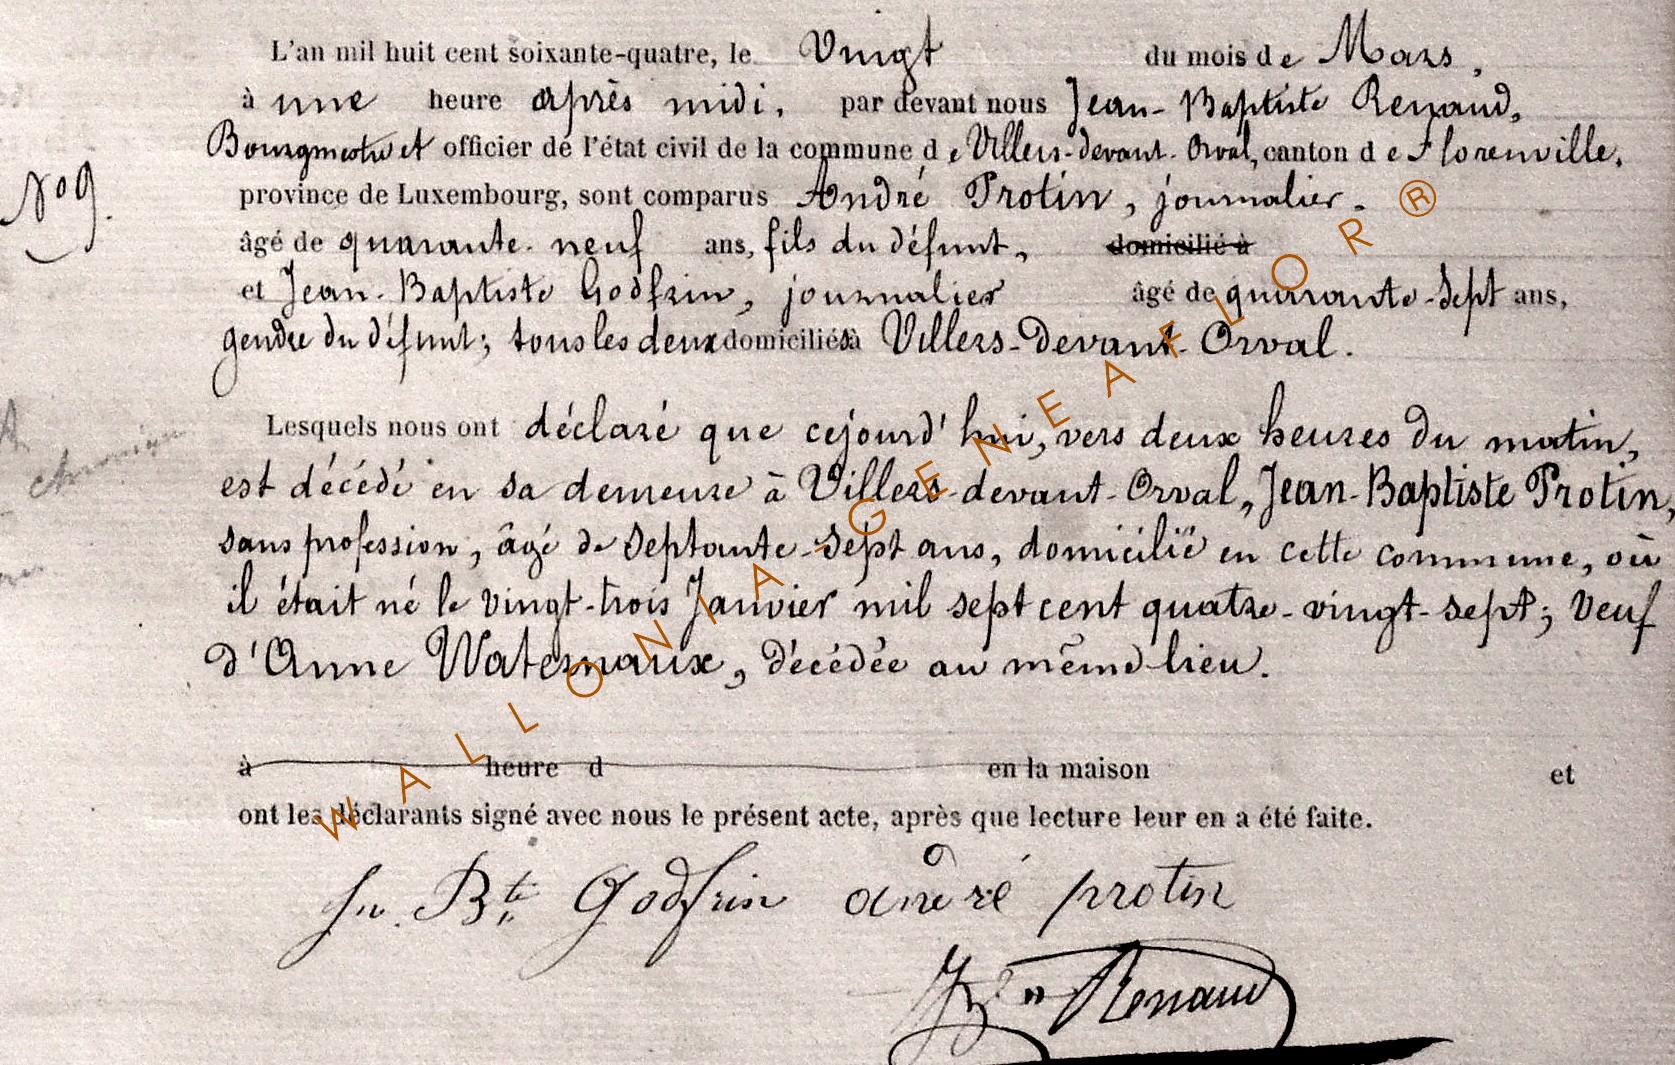 L'an mil huit cent soixante-quatre, le Vingt du mois de Mars,
à une heure après midi, par devant nous Jean-Baptiste Renaud,
Bourgmestre et officier de l'état civil de la commune de Villers-devant-Orval, canton de Florenville,
N° 9.
province de Luxembourg, sont comparus André Protin, journalier,
âgé de quarante-neuf ans, fils du défunt, domicilié à
et Jean-Baptiste Godfrin, journalier âgé de quarante-sept ans,
gendre du défunt; tous les deux domiciliés à Villers-Devant-Orval.
Lesquels nous ont déclaré que cejourd'hui, vers deux heures du matin,
est décédé en sa demeure à Villers-devant-Orval, Jean-Baptiste Protin,
sans profession, âgé de Septante-Sept ans, domicilié en cette commune, où
il était né le vingt-trois Janvier mil sept cent quatre-vingt-sept; Veuf
d'Anne Waternaux, décédée au même lieu.
à heure d en la maison et
ont les déclarants signé avec nous le présent acte, après que lecture leur en a été faite.
Jn. Bte Godfrin andré protin
Renaud
WALLONIA - GENEAFLOR ®